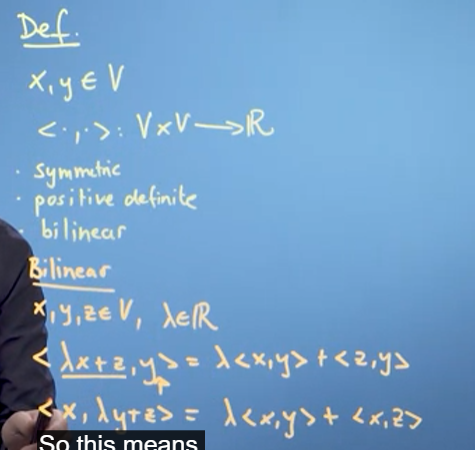 Def.
x, y ∈ V
<·,·>: V×V → ℝ
· symmetric
· positive definite
· bilinear
Bilinear
x, y, z ∈ V, λ∈ℝ
< λx+z, y> = λ<x,y> + <z,y>
<x, λy+z> = λ<x,y> + <x,z>
So this means